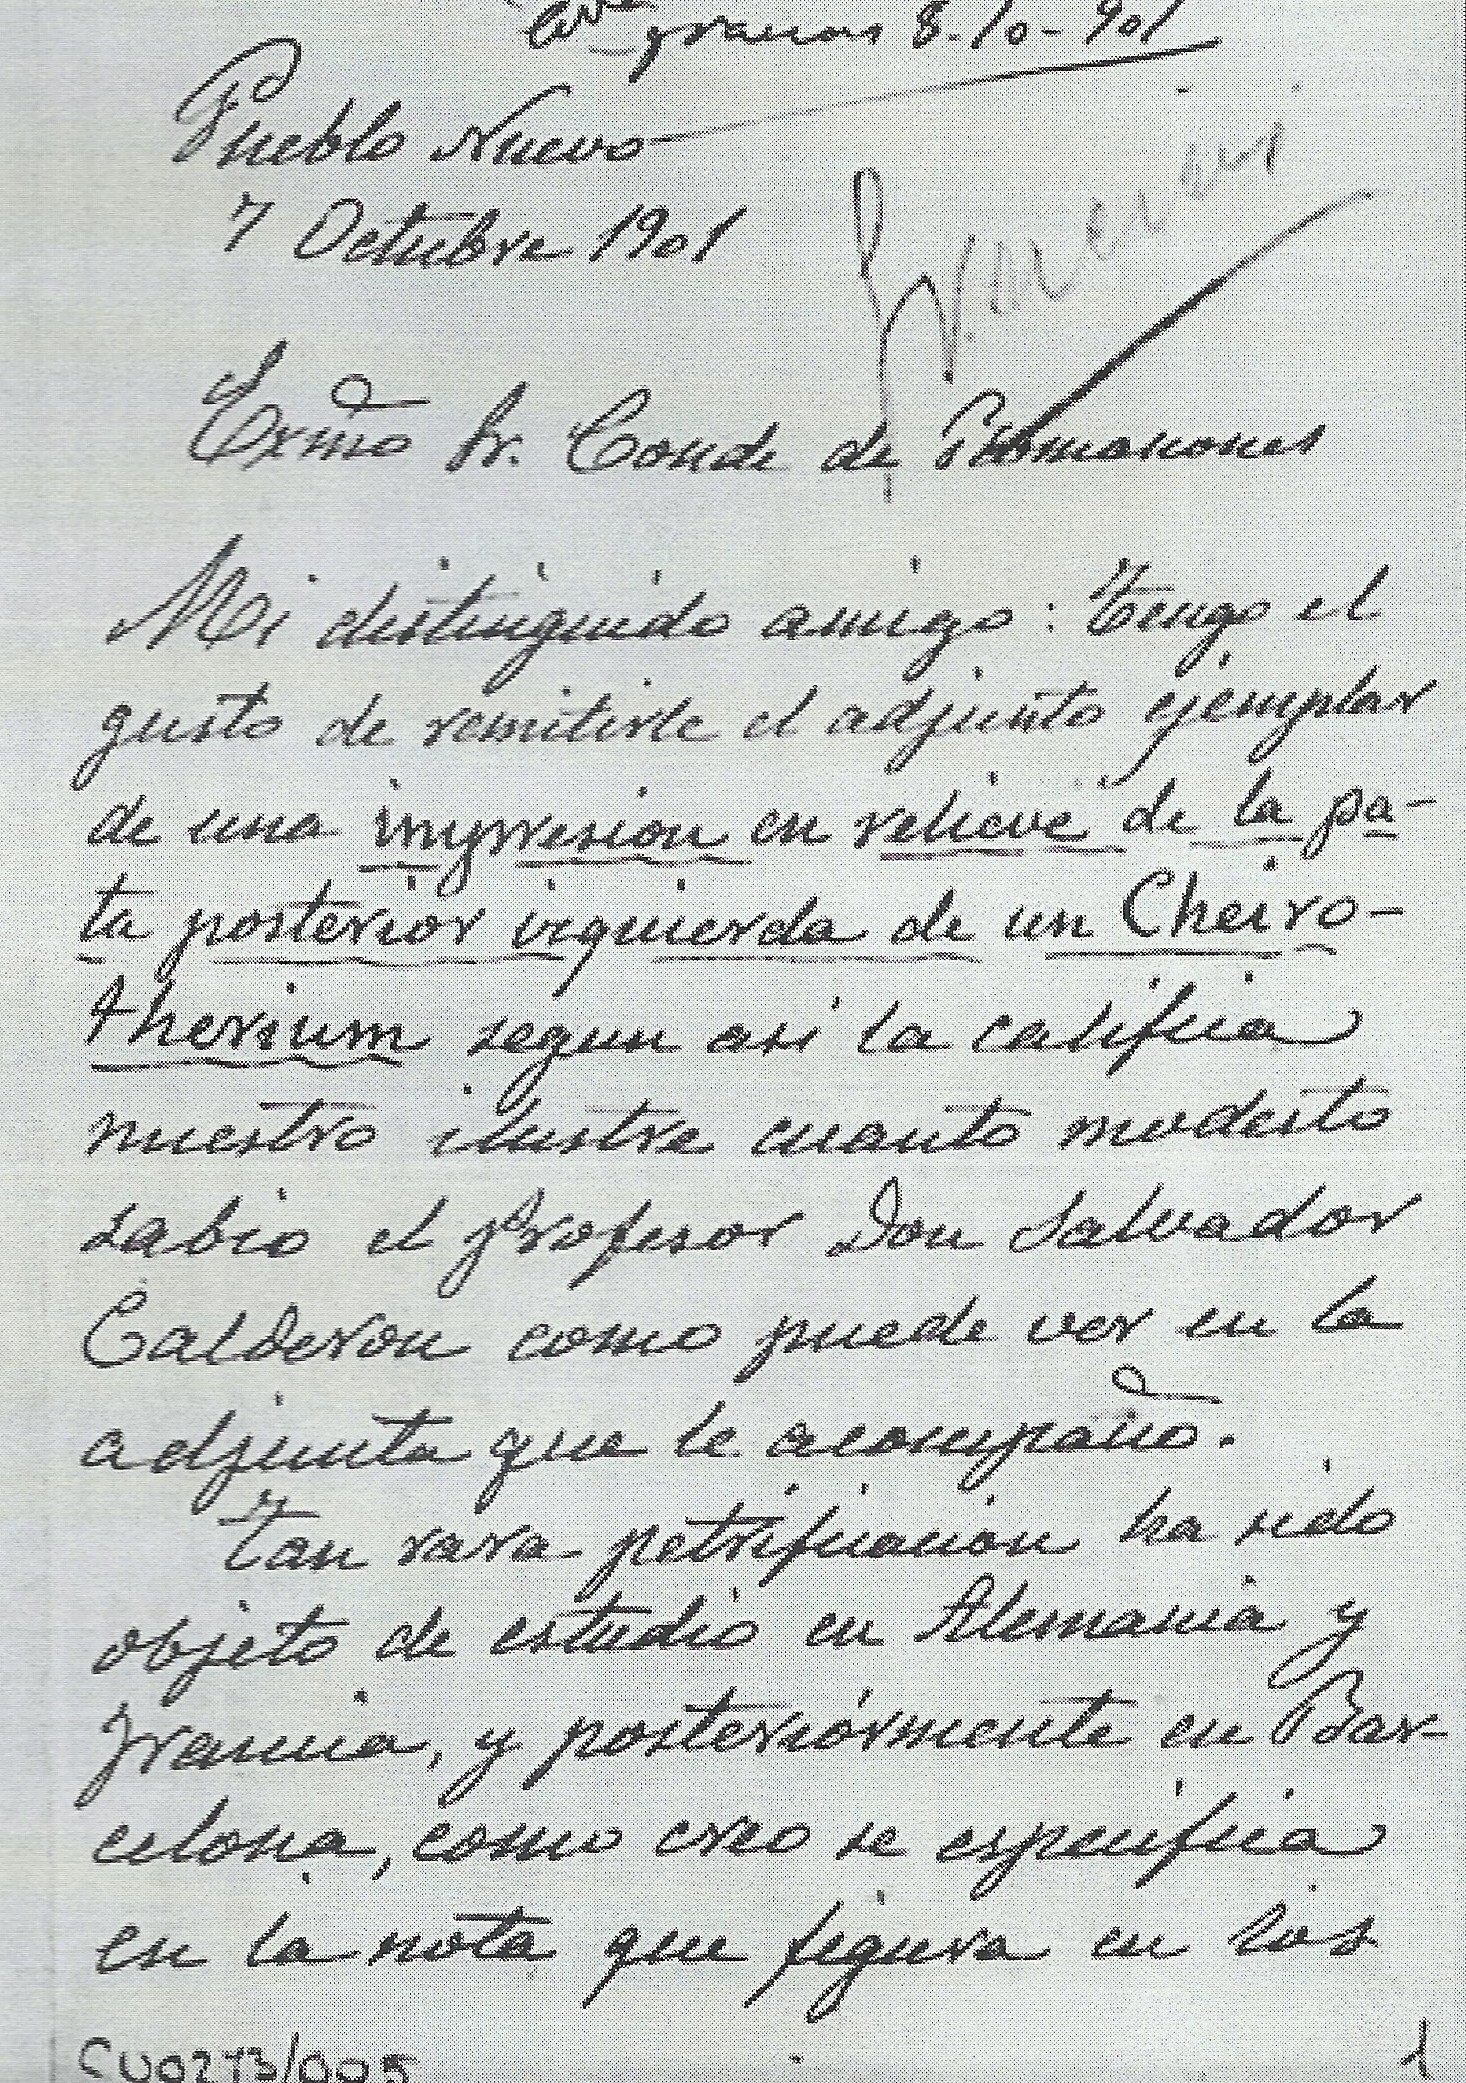 gracias 8-10-901
Pueblo Nuevo
7 Octubre 1901
Gracias
Exmo Sr. Conde de Romanones
Mi distinguido amigo: Tengo el
gusto de remitirle el adjunto ejemplar
de una impresion en relieve de la pa-
ta posterior izquierda de un Cheiro-
therium segun asi la califica
nuestro ilustre cuanto modesto
sabio el Profesor Don Salvador
Calderon como puede ver en la
adjunta que le acompaño.
Tan rara petrificacion ha sido
objeto de estudio en Alemania y
Francia, y posteriórmente en Bar-
celona, como creo se especifica
en la nota que figura en los
CU0273/005
1